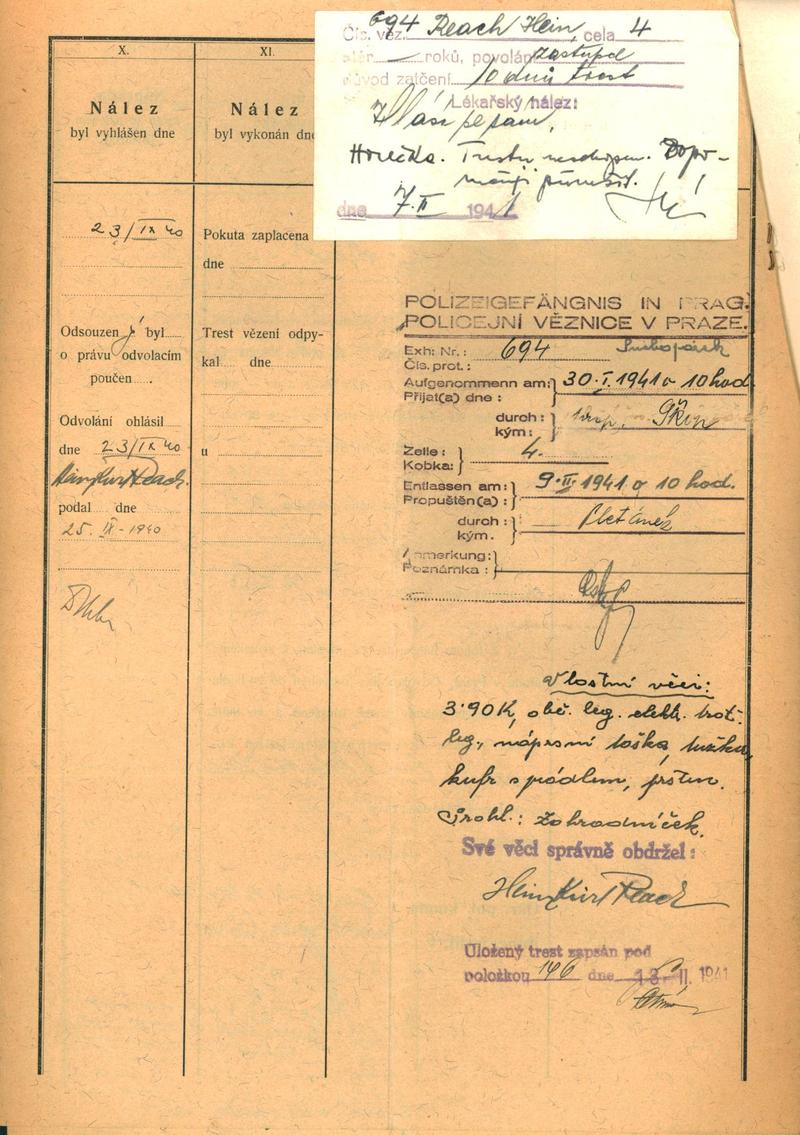 Čís. věz. 694 Reach Hein, cela 4
stár — roků, povolání zástupce
důvod zatčení 10 dnů trest
Lékařský nález:
Hlásí se sám,
Horečka. Trestu neschopen. Dopo-
ručuji přerušit.
dne 7.II 1941
X.
Nález
byl vyhlášen dne
23/IX 40
Odsouzen ý byl
o právu odvolacím
poučen
Odvolání ohlásil
dne 23/IX 40
Hein Kurt Reach
podal dne
25. IX - 1940
XI.
Nález
byl vykonán dne
Pokuta zaplacena
dne
Trest vězení odpy-
kal dne
u
POLIZEIGEFÄNGNIS IN PRAG.
POLICEJNÍ VĚZNICE V PRAZE.
Exh: Nr.: 694
Čís. prot.:
Aufgenommenn am: 30.I.1941 o 10 hod.
Přijat(a) dne:
durch:
kým:
Zelle: 4.
Kobka:
Entlassen am: 9.II.1941 o 10 hod.
Propuštěn(a):
durch:
kým.
Anmerkung:
Poznámka:
Vlastní věci:
3·90 K, obč. leg. elektr.
leg., náprsní taška, tužka,
kufr s prádlem, prsten.
Prohl.: Zahradníček.
Své věci správně obdržel:
Hein Kurt Reach
Uložený trest zapsán pod
položkou 146 dne 13. II. 1941